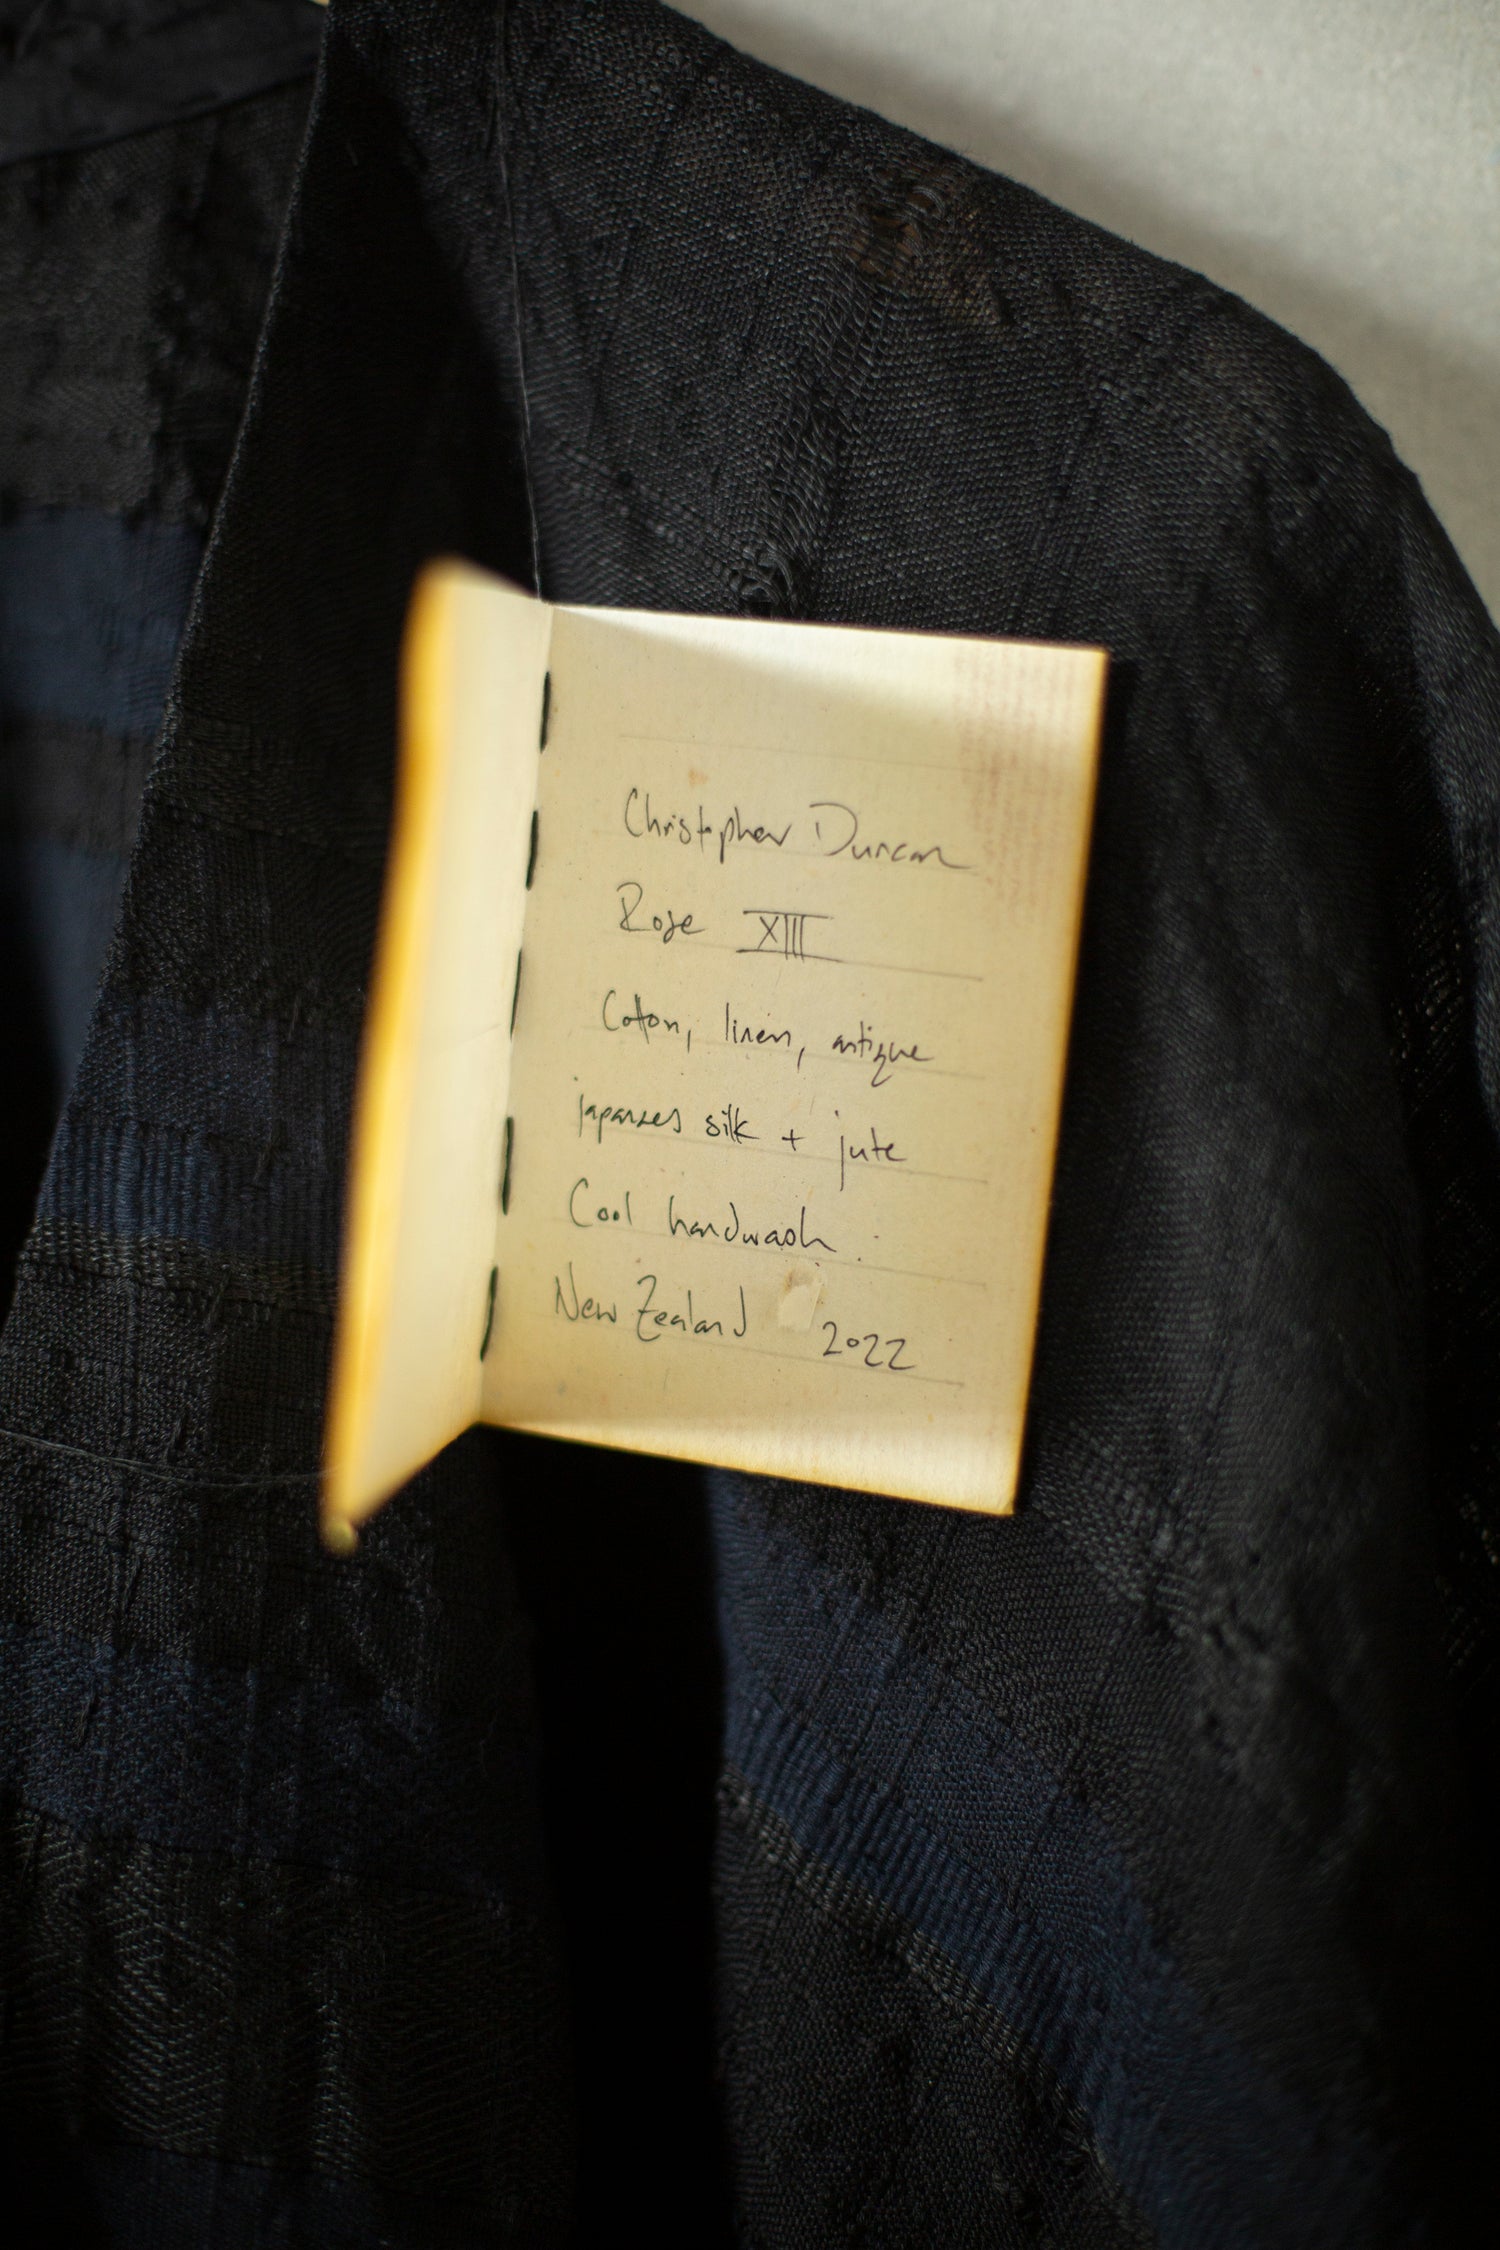 Christopher Duncan
Rose XIII
Cotton, linen, antique
japanses silk + jute
Cool handwash.
New Zealand 2022